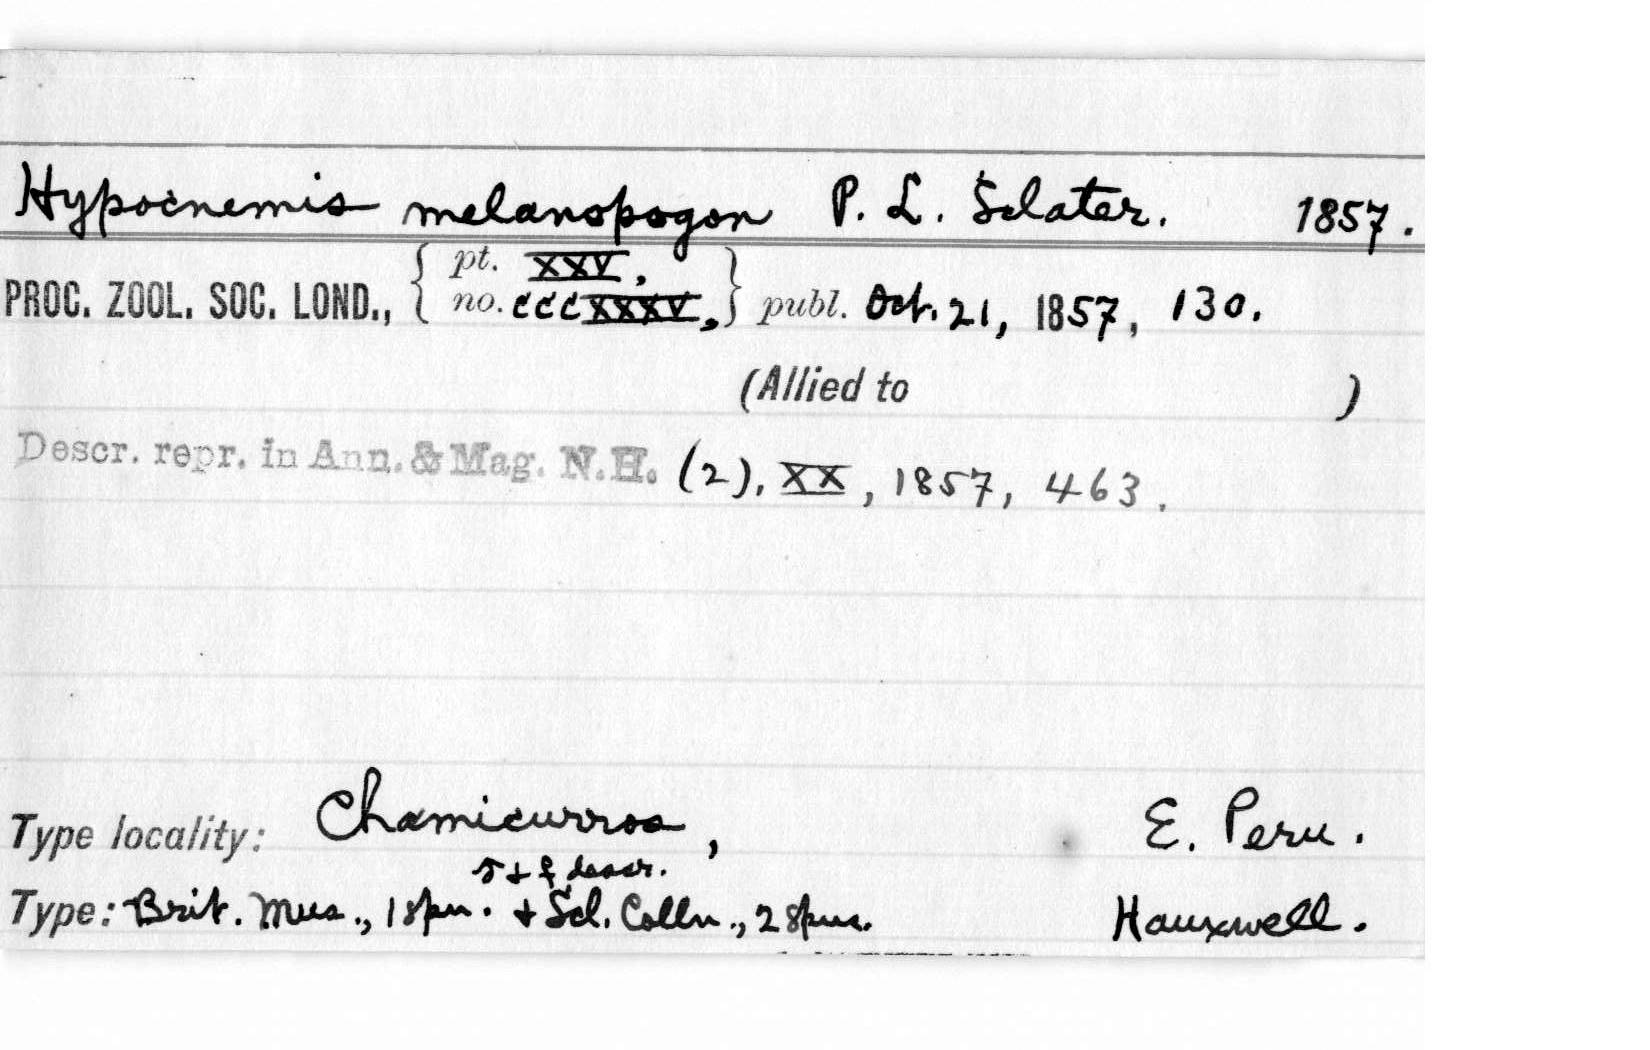 Hypocnemis melanopogon P. L. Sclater. 1857.
PROC. ZOOL. SOC. LOND., { pt. XXV, no. CCCXXXV, } publ. Oct. 21, 1857, 130.
(Allied to )
Descr. repr. in Ann. & Mag. N.H. (2), XX, 1857, 463.
Type locality: Chamicurros, E. Peru.
♂ + ♀ descr.
Type: Brit. Mus., 1 spm. + Scl. Colln., 2 spms. Hauxwell.